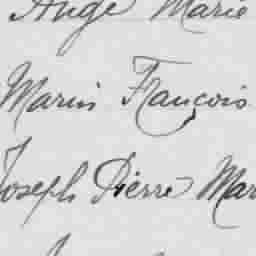 Ange Marie
Marin François
Joseph Pierre Mar